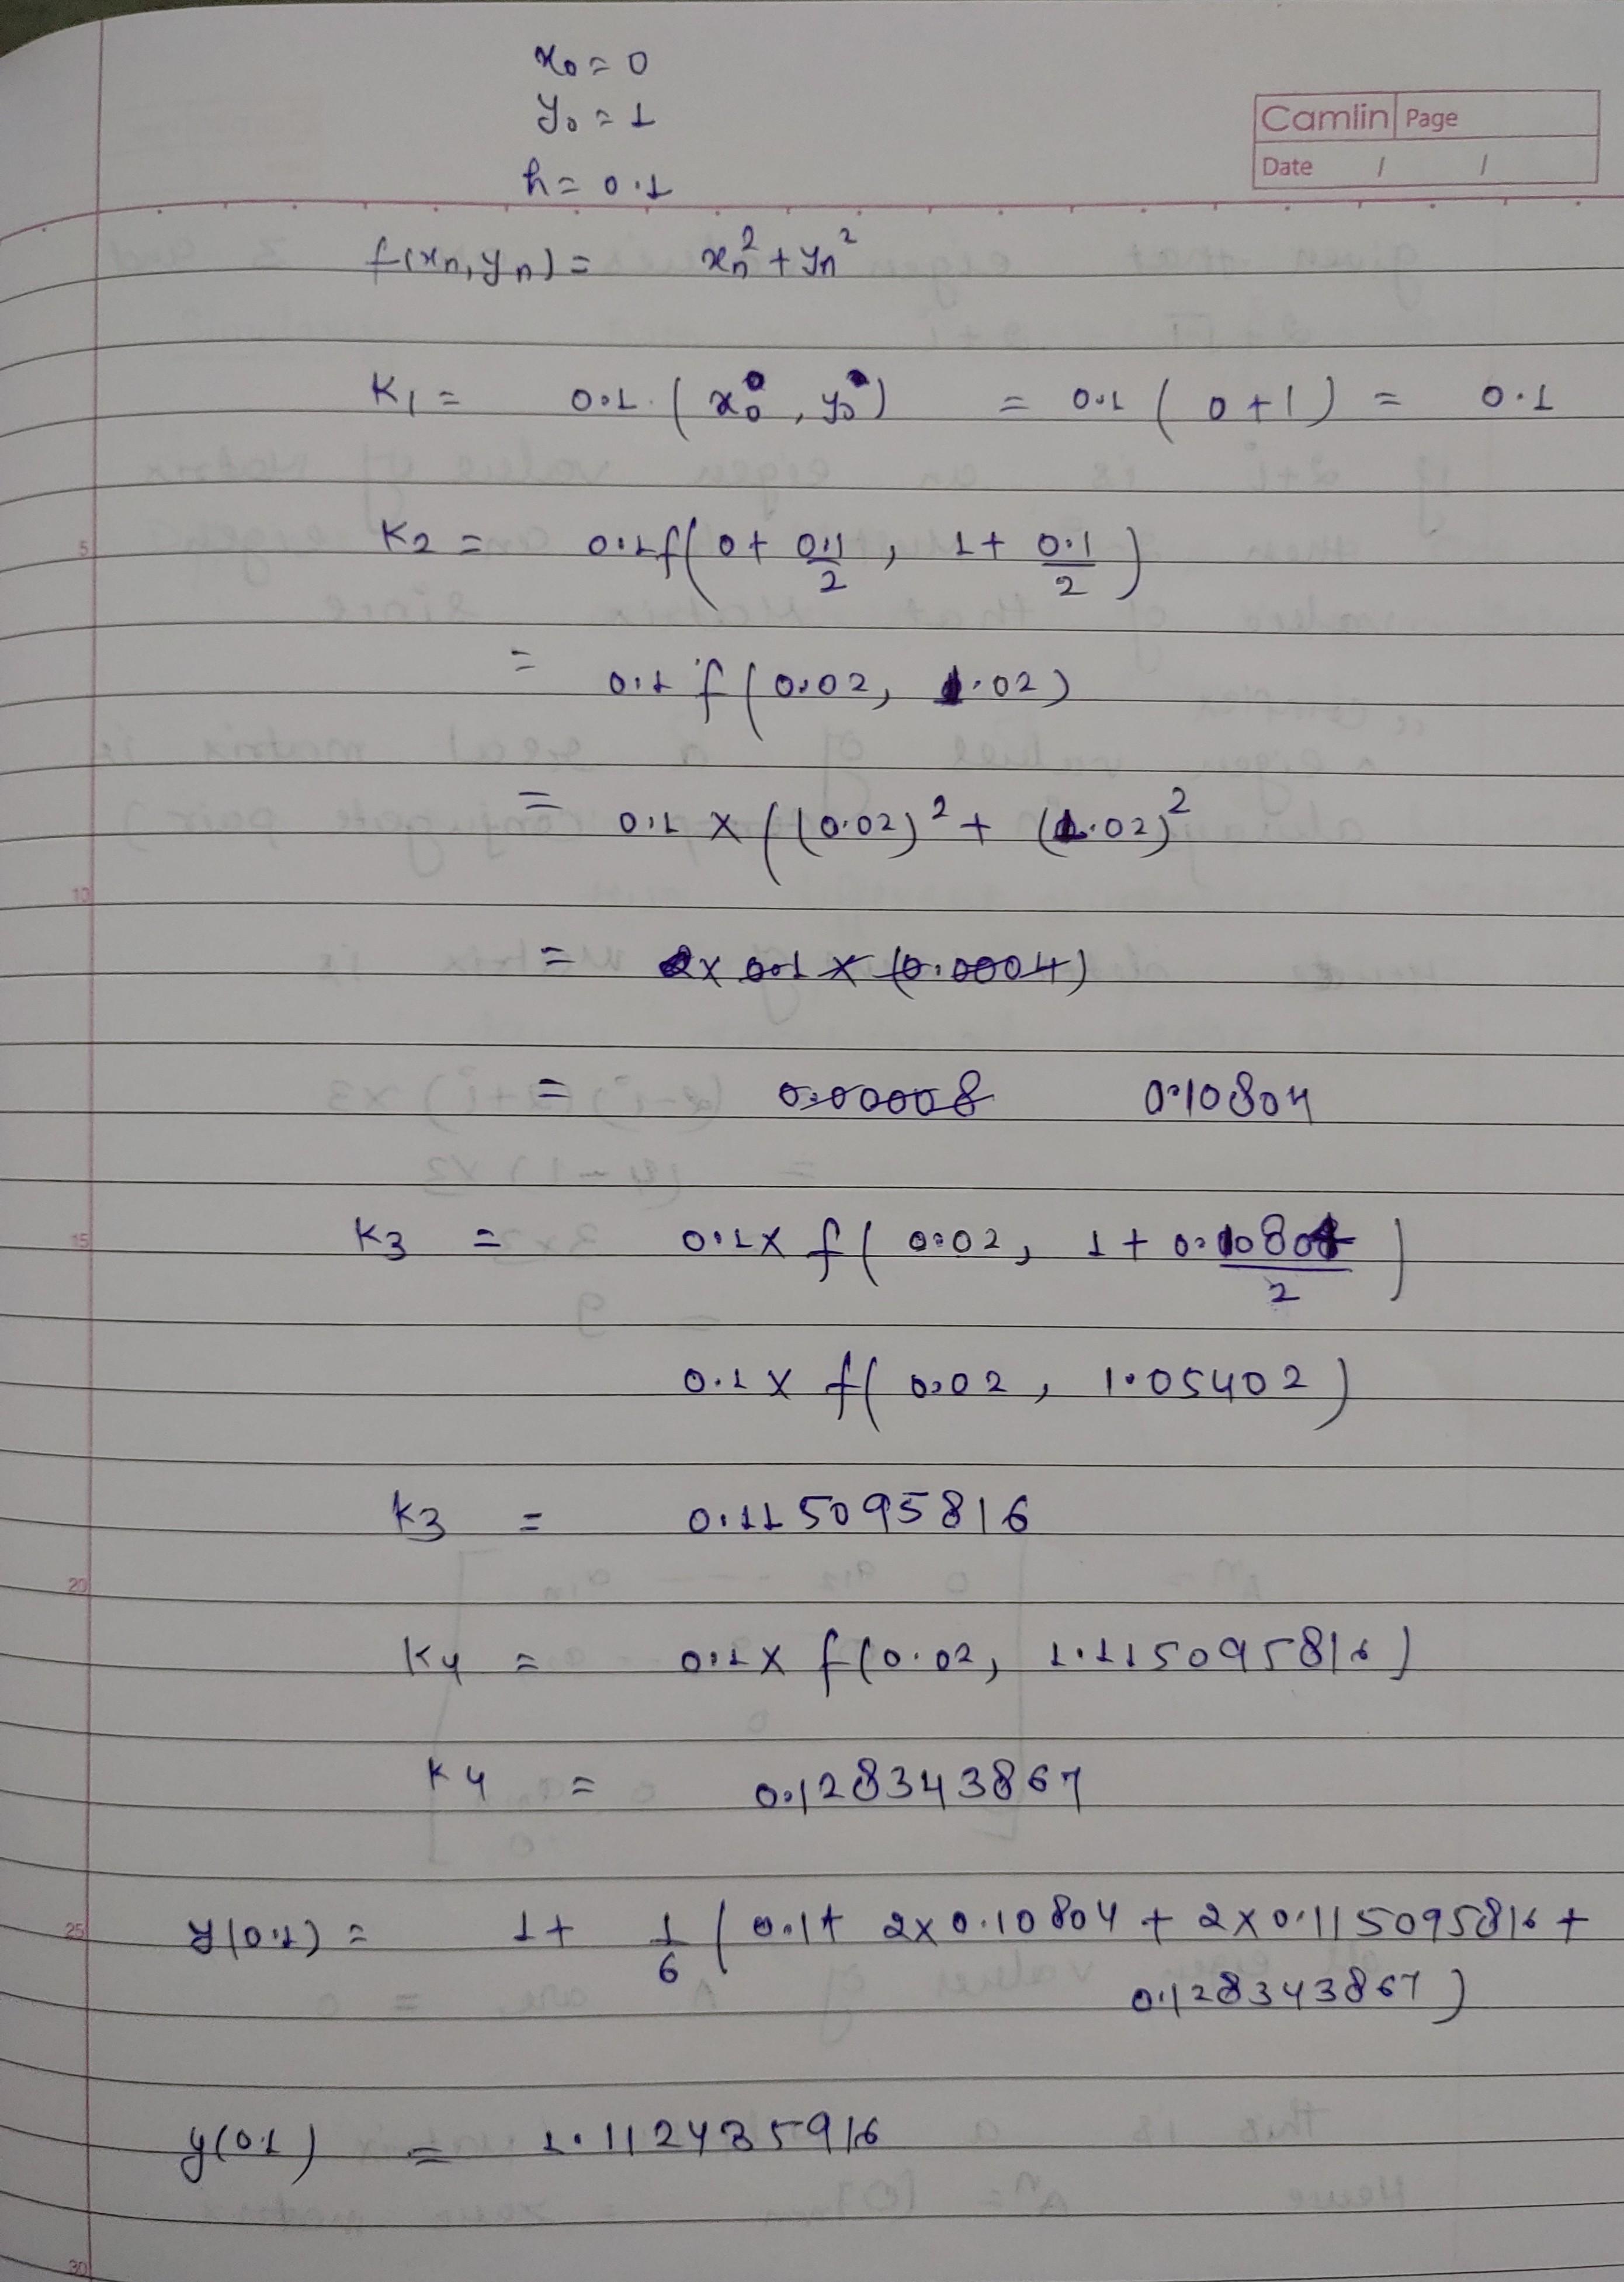 x₀ = 0
y₀ = 1
h = 0.1
Camlin Page
Date / /
f(xₙ, yₙ) = xₙ² + yₙ²
K₁ = 0.1 (x₀, y₀) = 0.1 (0+1) = 0.1
5
K₂ = 0.1 f(0 + 0.1/2, 1 + 0.1/2)
= 0.1 f(0.02, 1.02)
= 0.1 × ((0.02)² + (1.02)²
10
= 2 × 0.1 × (0.0004)
= 0.00008 0.10804
15
K₃ = 0.1 × f(0.02, 1 + 0.10804/2)
0.1 × f(0.02, 1.05402)
K₃ = 0.115095816
20
K₄ = 0.1 × f(0.02, 1.115095816)
K₄ = 0.128343867
25
y(0.1) = 1 + 1/6 (0.1 + 2×0.10804 + 2×0.115095816 +
0.128343867)
y(0.1) = 1.112435916
30